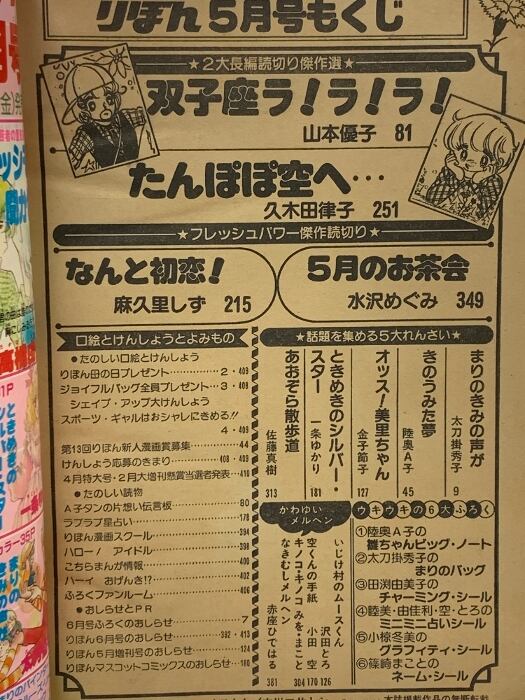 りぼん5月号もくじ
★2大長編読切り傑作選★
双子座ラ!ラ!ラ!
山本優子 81
たんぽぽ空へ…
久木田律子 251
★フレッシュパワー傑作読切り★
なんと初恋!
麻久里しず 215
5月のお茶会
水沢めぐみ 349
口絵とけんしょうとよみもの
●たのしい口絵とけんしょう
りぼん母の日プレゼント……2・409
ジョイフルバッグ全員プレゼント…3・408
シェイプ・アップ大けんしょう
スポーツ・ギャルはおシャレにきめる!!
4・409
第13回りぼん新人漫画賞募集……44
けんしょう応募のきまり……408・409
4月特大号・2月大増刊懸賞当選者発表…410
●たのしい読物
A子タンの片想い伝言板……80
ラブラブ星占い……178
りぼん漫画スクール……394
ハロー! アイドル……398
こちらまんが情報……400
ハーイ おげんき!?……402
ふろくファンルーム……406
●おしらせとPR
6月号ふろくのおしらせ……7
りぼん6月号のおしらせ……392・413
りぼん5月増刊号のおしらせ……124
りぼんマスコットコミックスのおしらせ……180
★話題を集める5大れんさい★
まりのきみの声が
太刀掛秀子
9
きのうみた夢
陸奥A子
45
オッス!美里ちゃん
金子節子
127
ときめきのシルバー・
スター
一条ゆかり
181
あおぞら散歩道
佐藤真樹
313
かわゆい
メルヘン
いじけ村のムースくん
沢田とろ
126
空くんの手紙
小田空
170
キノコ・キノコ
みを・まこと
304
なきむしメルヘン
赤座ひではる
381
ウキウキの6大ふろく
①陸奥A子の
雛ちゃんビッグ・ノート
②太刀掛秀子の
まりのバッグ
③田渕由美子の
チャーミング・シール
④睦美・由佳利・空・とろの
ミニミニ占いシール
⑤小椋冬美の
グラフィティ・シール
⑥篠崎まことの
ネーム・シール